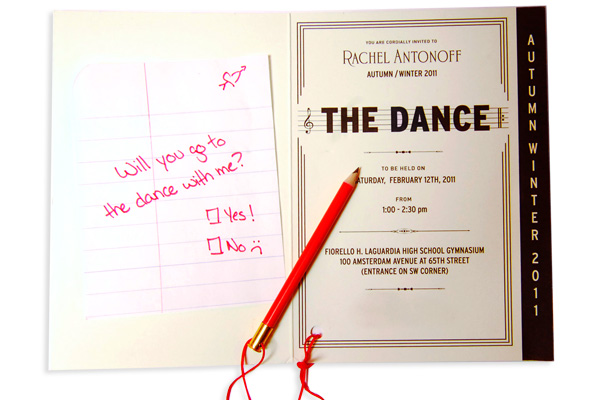 Will you go to
the dance with me?
Yes!
No
YOU ARE CORDIALLY INVITED TO
RACHEL ANTONOFF
AUTUMN / WINTER 2011
THE DANCE
TO BE HELD ON
SATURDAY, FEBRUARY 12TH, 2011
FROM
1:00 - 2:30 pm
FIORELLO H. LAGUARDIA HIGH SCHOOL GYMNASIUM
100 AMSTERDAM AVENUE AT 65TH STREET
(ENTRANCE ON SW CORNER)
AUTUMN WINTER 2011